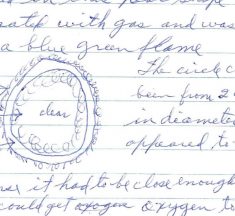 with gas and was
a blue green flame
The circle c
clear
been from 2
in deameter
appeared to
it had to be close enough
could get oxogen oxygen to